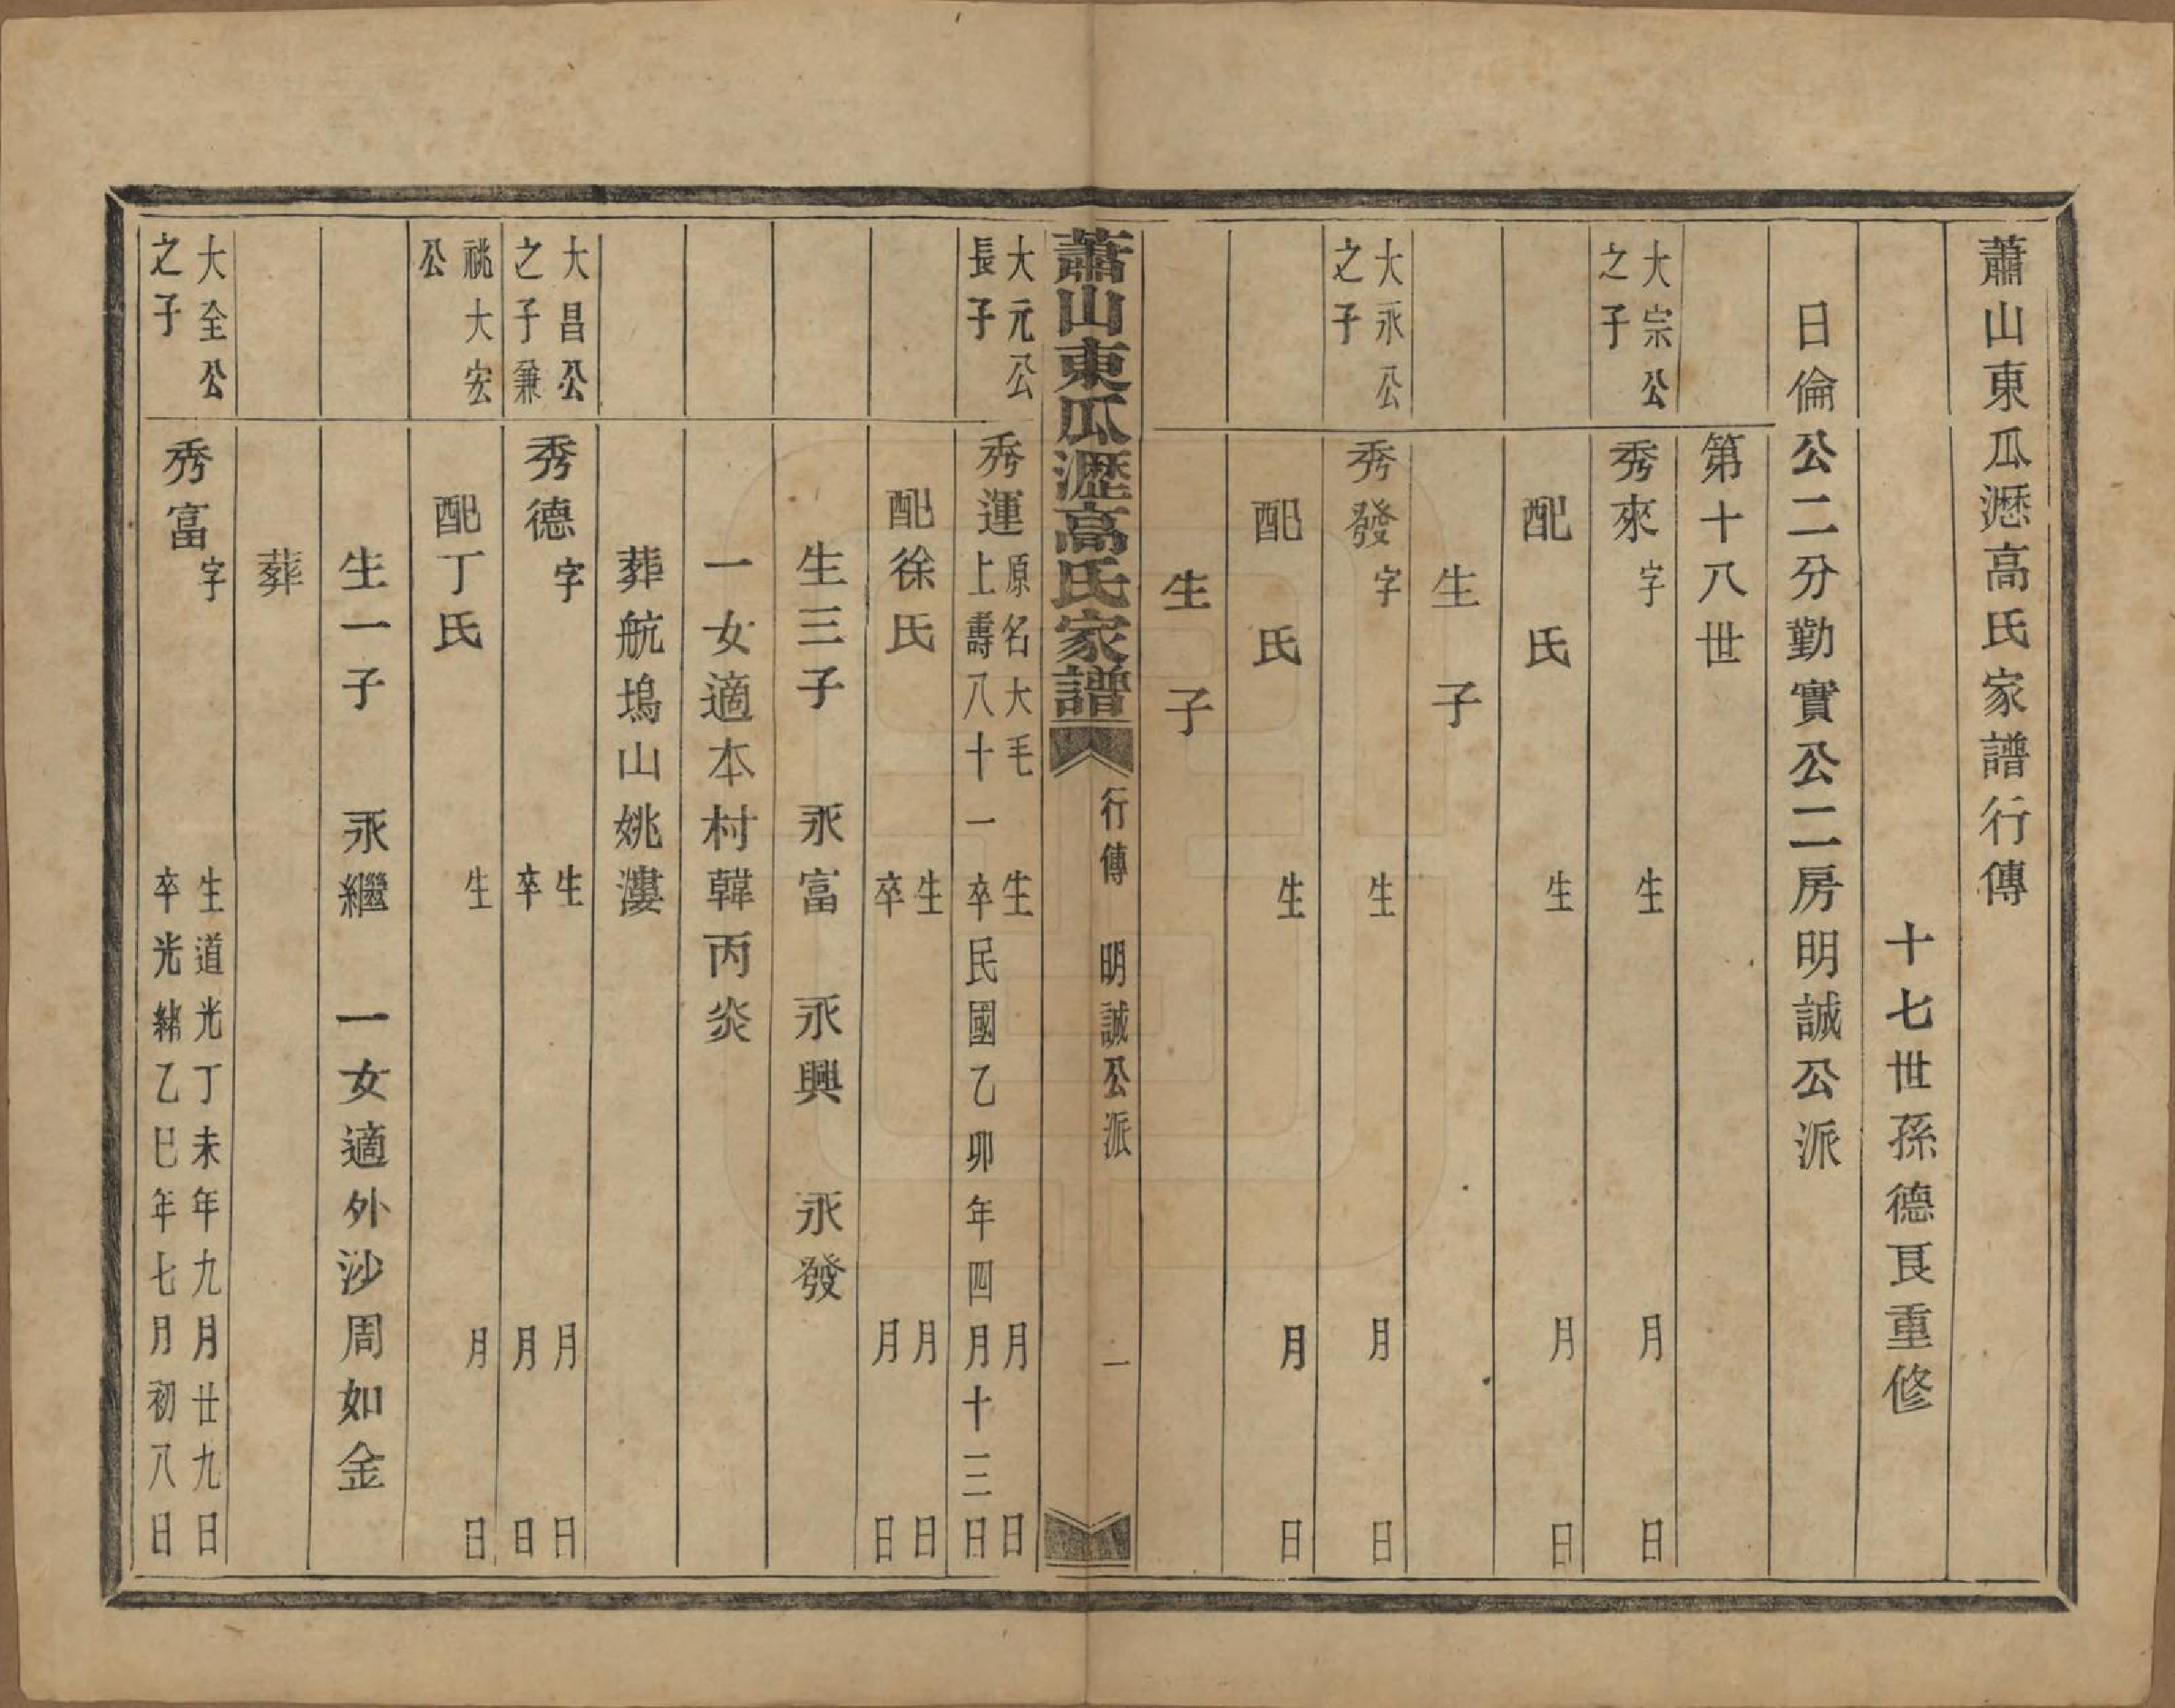 蕭山東瓜瀝高氏家譜行傳
十七世孫德良重修
日倫公二分勤實公二房明誠公派
第十八世
大宗公
之子
秀來字 生 月 日
配 氏 生 月 日
生 子
大永公
之子
秀發字 生 月 日
配 氏 生 月 日
生 子
蕭山東瓜瀝高氏家譜 行傳 明誠公派 一
大元公
長子
秀運
原名大毛 生 月 日
上壽八十一 卒民國乙卯年四月十三日
配徐氏
生 月 日
卒 月 日
生三子 永富 永興 永發
一女適本村韓丙炎
葬航塢山姚漊
大昌公
之子兼
祧大宏
公
秀德字
生 月 日
卒 月 日
配丁氏 生 月 日
生一子 永繼 一女適外沙周如金
葬
大全公
之子
秀富字
生道光丁未年九月廿九日
卒光緒乙巳年七月初八日